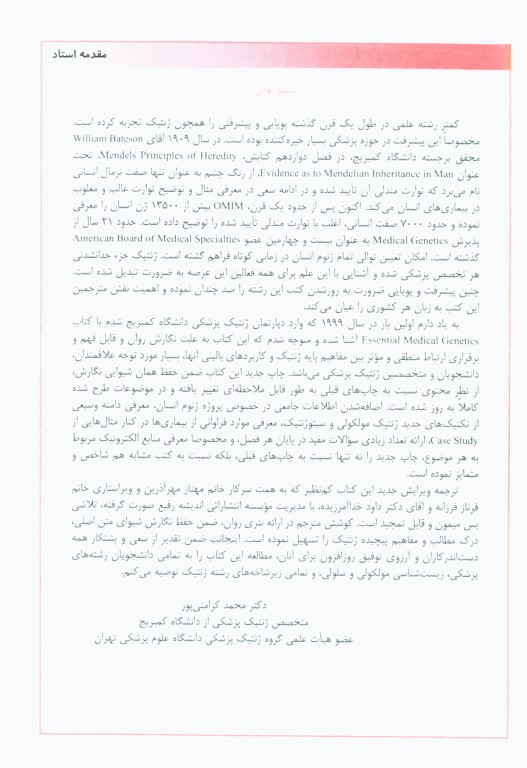 مقدمه استاد
بسمه تعالی
کمتر رشته علمی در طول یک قرن گذشته پویایی و پیشرفتی را همچون ژنتیک تجربه کرده است.
مخصوصاً این پیشرفت در حوزه پزشکی بسیار خیره‌کننده بوده است. در سال ۱۹۰۹ آقای William Bateson
محقق برجسته دانشگاه کمبریج، در فصل دوازدهم کتابش، Mendels Principles of Heredity، تحت
عنوان Evidence as to Mendelian Inheritance in Man، از رنگ چشم به عنوان تنها صفت نرمال انسانی
نام می‌برد که توارث مندلی آن تأیید شده و در ادامه سعی در معرفی مثال و توضیح توارث غالب و مغلوب
در بیماری‌های انسان می‌کند. اکنون پس از حدود یک قرن، OMIM بیش از ۱۳۵۰۰ ژن انسان را معرفی
نموده و حدود ۷۰۰۰ صفت انسانی، اغلب با توارث مندلی تأیید شده را توضیح داده است. حدود ۲۱ سال از
پذیرش Medical Genetics به عنوان بیست و چهارمین عضو American Board of Medical Specialties
گذشته است. امکان تعیین توالی تمام ژنوم انسان در زمانی کوتاه فراهم گشته است. ژنتیک جزء جدانشدنی
هر تخصص پزشکی شده و آشنایی با این علم برای همه فعالین این عرصه به ضرورت تبدیل شده است.
چنین پیشرفت و پویایی ضرورت به روزشدن کتب این رشته را صد چندان نموده و اهمیت نقش مترجمین
این کتب به زبان هر کشوری را عیان می‌کند.
به یاد دارم اولین بار در سال ۱۹۹۹ که وارد دپارتمان ژنتیک پزشکی دانشگاه کمبریج شدم با کتاب
Essential Medical Genetics آشنا شده و متوجه شدم که این کتاب به علت نگارش روان و قابل فهم و
برقراری ارتباط منطقی و مؤثر بین مفاهیم پایه ژنتیک و کاربردهای بالینی آنها، بسیار مورد توجه علاقمندان،
دانشجویان و متخصصین ژنتیک پزشکی می‌باشد. چاپ جدید این کتاب ضمن حفظ همان شیوایی نگارش،
از نظر محتوی نسبت به چاپ‌های قبلی به طور قابل ملاحظه‌ای تغییر یافته و در موضوعات طرح شده
کاملاً به روز شده است. اضافه‌شدن اطلاعات جامعی در خصوص پروژه ژنوم انسان، معرفی دامنه وسیعی
از تکنیک‌های جدید ژنتیک مولکولی و سیتوژنتیک، معرفی موارد فراوانی از بیماری‌ها در کنار مثال‌هایی از
Case Study، ارائه تعداد زیادی سؤالات مفید در پایان هر فصل، و مخصوصاً معرفی منابع الکترونیک مربوط
به هر موضوع، چاپ جدید را نه تنها نسبت به چاپ‌های قبلی، بلکه نسبت به کتب مشابه هم شاخص و
متمایز نموده است.
ترجمه ویرایش جدید این کتاب کم‌نظیر که به همت سرکار خانم مهناز مهرآذرین و ویراستاری خانم
فرناز فرزانه و آقای دکتر داود خداآمرزیده، با مدیریت مؤسسه انتشاراتی اندیشه رفیع صورت گرفته، تلاشی
بس میمون و قابل تمجید است. کوشش مترجم در ارائه نثری روان، ضمن حفظ نگارش شیوای متن اصلی،
درک مطالب و مفاهیم پیچیده ژنتیک را تسهیل نموده است. اینجانب ضمن تقدیر از سعی و پشتکار همه
دست‌اندرکاران و آرزوی توفیق روزافزون برای آنان، مطالعه این کتاب را به تمامی دانشجویان رشته‌های
پزشکی، زیست‌شناسی مولکولی و سلولی، و تمامی زیرشاخه‌های رشته ژنتیک توصیه می‌کنم.
دکتر محمد کرامتی‌پور
متخصص ژنتیک پزشکی از دانشگاه کمبریج
عضو هیأت علمی گروه ژنتیک پزشکی دانشگاه علوم پزشکی تهران